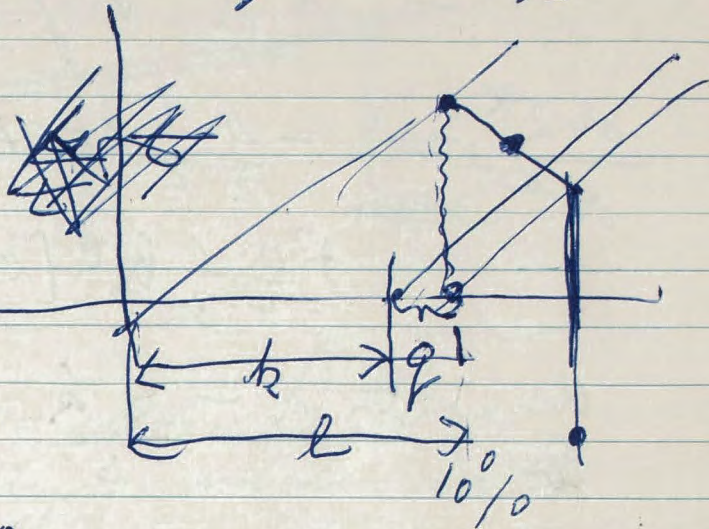 k q
l
10%